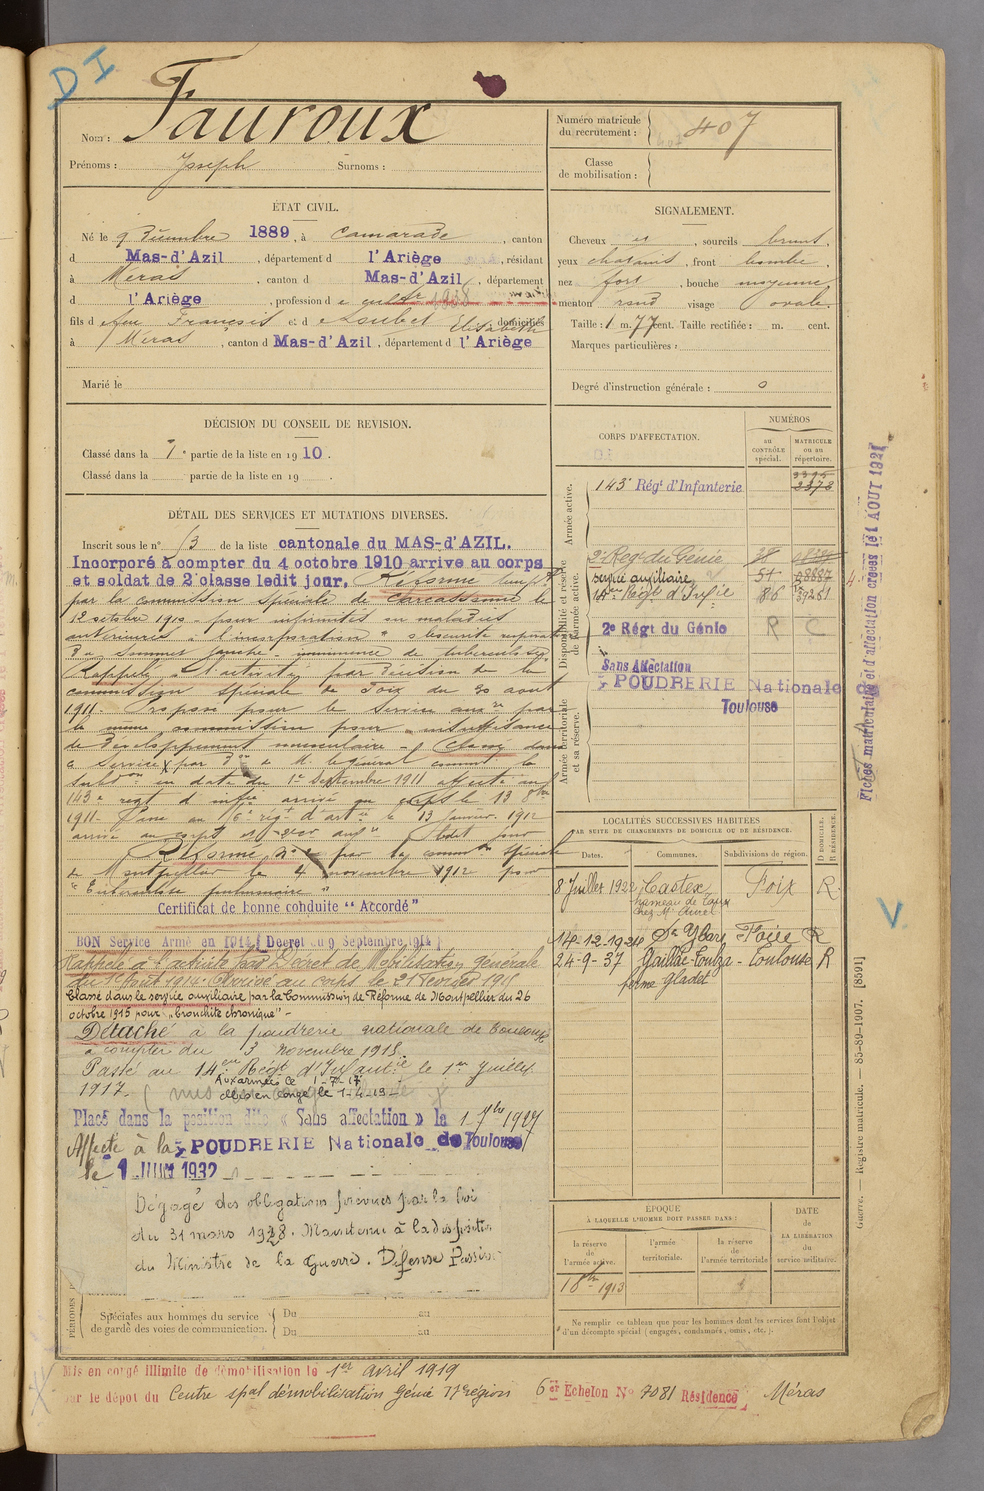 D I
Nom : Fauroux
Prénoms : Joseph Surnoms :
Numéro matricule du recrutement : 407
Classe de mobilisation :
ÉTAT CIVIL.
Né le 9 Décembre 1889, à Camarade, canton
d Mas-d'Azil, département d l'Ariège, résidant
à Méras, canton d Mas-d'Azil, département
d l'Ariège, profession d
fils d feu François et d Loubet Elisabeth domiciliés
à Méras, canton d Mas-d'Azil, département d l'Ariège
Marié le
SIGNALEMENT.
Cheveux et, sourcils bruns,
yeux chatains, front bombé,
nez fort, bouche moyenne
menton rond visage ovale.
Taille : 1 m. 77 cent. Taille rectifiée : m. cent.
Marques particulières :
Degré d'instruction générale : 0
DÉCISION DU CONSEIL DE REVISION.
Classé dans la 1e partie de la liste en 1910.
Classé dans la partie de la liste en 19 .
DÉTAIL DES SERVICES ET MUTATIONS DIVERSES.
Inscrit sous le n° 13 de la liste cantonale du MAS-d'AZIL.
Incorporé à compter du 4 octobre 1910 arrive au corps
et soldat de 2e classe ledit jour. Réformé
par la commission spéciale de Carcassonne le
12 octobre 1910 - pour infirmités ou maladies
antérieures à l'incorporation "obscurité
du sommet gauche - imminence de tuberculose
Rappelé à l'activité par décision de la
commission spéciale de Foix du 30 aout
1911. Proposé pour le service auxre par
la même commission pour insuffisance
de développement musculaire - Classé dans
le service par Don de M. le Général commt la
subdon en date du 1er Septembre 1911 affecté au
143e regt d'infie arrivé au corps le 13 8bre
1911. Passé au 6e régt d'artie le 13 Janvier 1912
arrivé au corps et
Réformé n°2 par la common spéciale
de Montpellier le 4 novembre 1912 pour
Certificat de bonne conduite "Accordé"
BON Service Armé en 1914 (Décret du 9 Septembre 1914)
Rappelé à l'activité par Décret de Mobilisation générale
du 1er Août 1914. Arrivé au corps le 21 Février 191
Classé dans le service auxiliaire par la Commission de Réforme de Montpellier du 26
octobre 1915 pour "Bronchite chronique" -
Détaché à la poudrerie nationale de Toulouse
à compter du 3 novembre 1915.
Passé au 14eme Régt d'Infantie le 1er Juillet
1917.
Aux armées le 1-7-17
Mis en congé le 1-4-19
Placé dans la position dite « Sans affectation » le 1 7bre 1927
Affecté à la POUDRERIE Nationale de Toulouse
le 1 JUIN 1932
Dégagé des obligations prévues par la loi
du 31 mars 1928. Maintenu à la disposition
du Ministre de la Guerre. Défense Passive
CORPS D'AFFECTATION.
NUMÉROS
au CONTRÔLE spécial.
MATRICULE ou au répertoire.
Armée active.
143e Régt d'Infanterie 2378
Disponibilité et réserve de l'armée active.
2e Regt du Génie 38
service auxiliaire 51
14e Régt d'Infie 86
2e Régt du Génie R C
Sans Affectation
POUDRERIE Nationale de
Toulouse
Armée territoriale et sa réserve.
LOCALITÉS SUCCESSIVES HABITÉES
PAR SUITE DE CHANGEMENTS DE DOMICILE OU DE RÉSIDENCE.
Dates. Communes. Subdivisions de région. D DOMICILE. R RÉSIDENCE.
8 Juillet 1922 Castex Foix R
14-12-1924 Foix R
24-9-37 Gaillac-Toulza - Toulouse R
ferme Gladet
ÉPOQUE
À LAQUELLE L'HOMME DOIT PASSER DANS :
la réserve de l'armée active.
l'armée territoriale.
la réserve de l'armée territoriale
DATE de LA LIBÉRATION du service militaire.
1 8bre 1913
Ne remplir ce tableau que pour les hommes dont les services font l'objet
d'un décompte spécial (engagés, condamnés, omis, etc.).
PÉRIODES
Spéciales aux hommes du service
de garde des voies de communication.
Du au
Du au
Mis en congé illimité de démobilisation le 1er Avril 1919
par le dépôt du Centre spal démobilisation Génie 17e région 6e Echelon N° 7081 Résidence Méras
Fiches matriculaire et d'affectation créées le 1 AOUT 1927
Guerre. — Registre matricule. — 85-89-1907. [8591]
V.